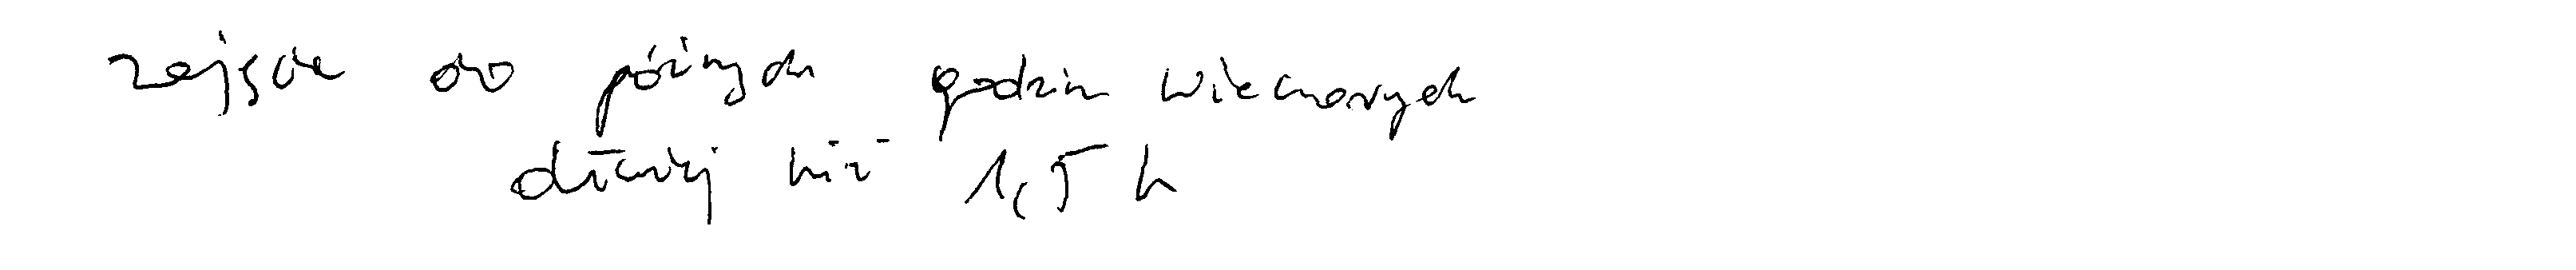 zajęcia do późnych godzin wieczornych
dłużej niż 1,5 h